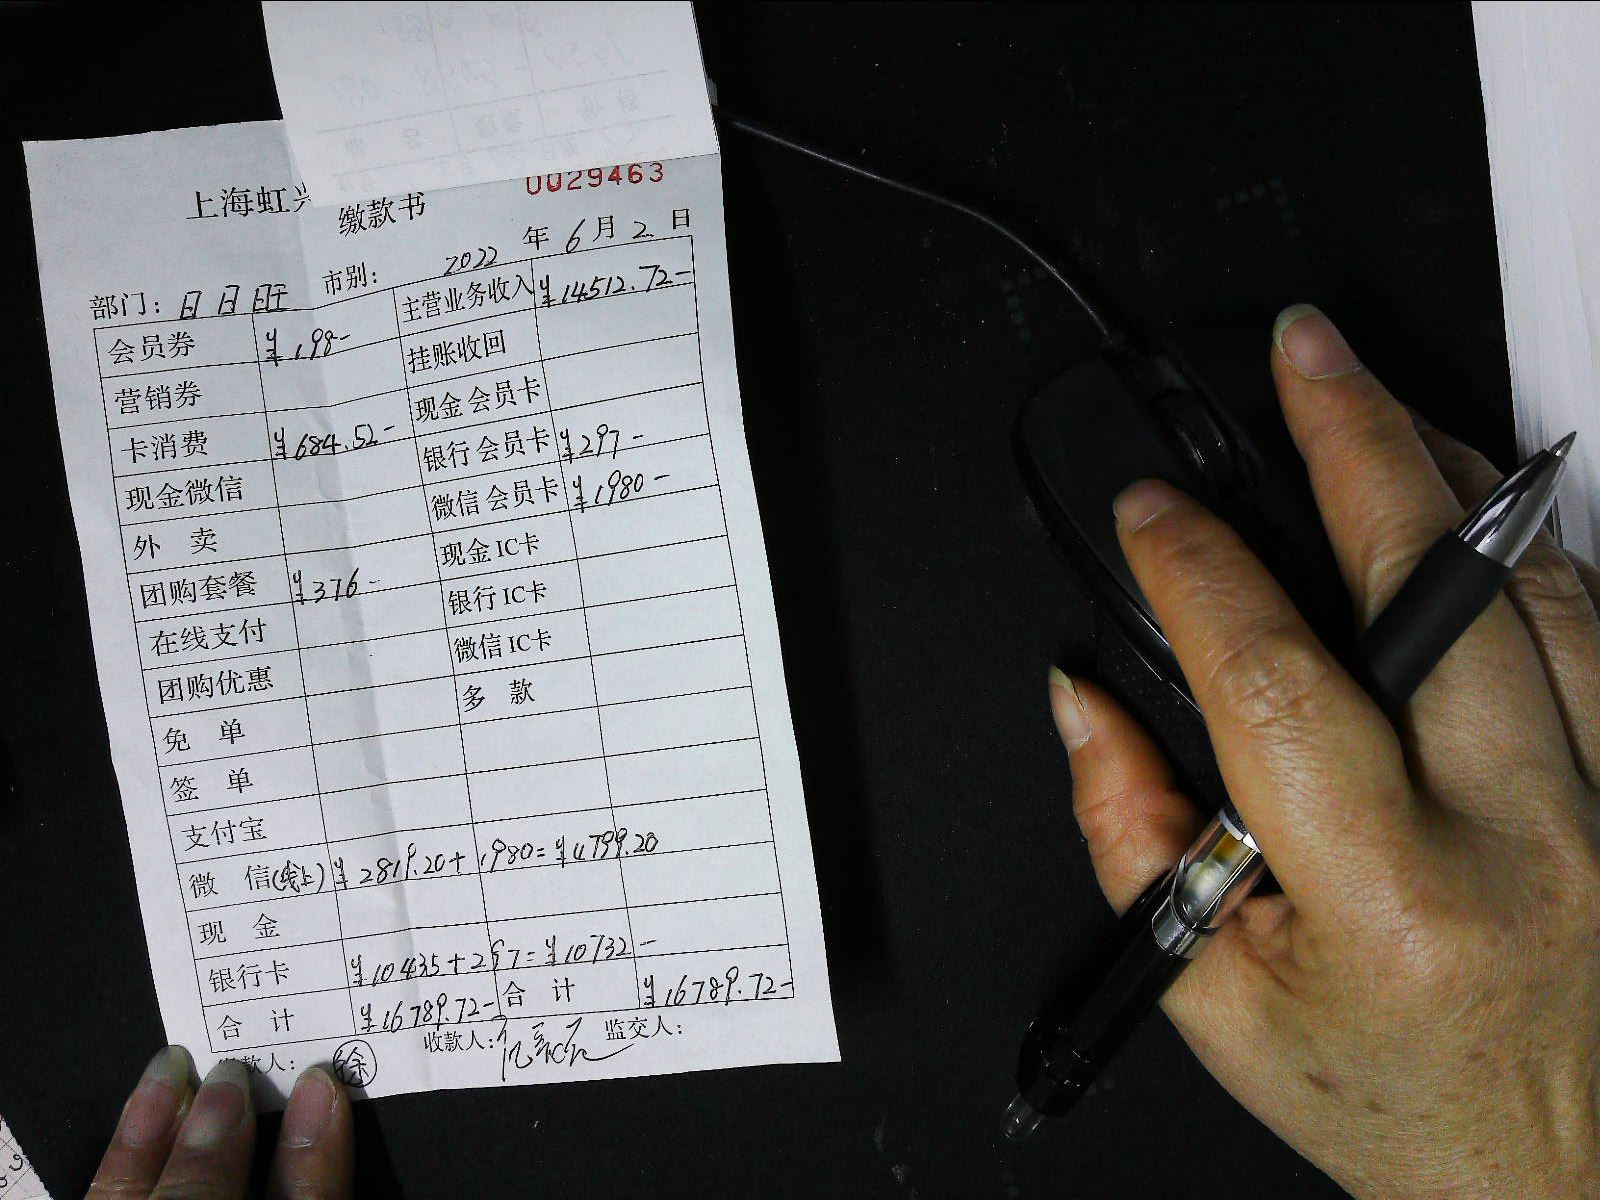 0029463
上海虹兴
缴款书
部门：日日旺 市别： 2022 年 6 月 2 日
会员券 ¥198- 主营业务收入 ¥14512.72-
营销券 挂账收回
卡消费 ¥684.52- 现金会员卡
现金微信 银行会员卡 ¥297-
外 卖 微信会员卡 ¥1980-
团购套餐 ¥376- 现金IC卡
在线支付 银行IC卡
团购优惠 微信IC卡
免 单 多 款
签 单
支付宝
微 信(线上) ¥2819.20+1980=¥4799.20
现 金
银行卡 ¥10435+297=¥10732-
合 计 ¥16789.72- 合 计 ¥16789.72-
款人： 徐 收款人： 监交人：